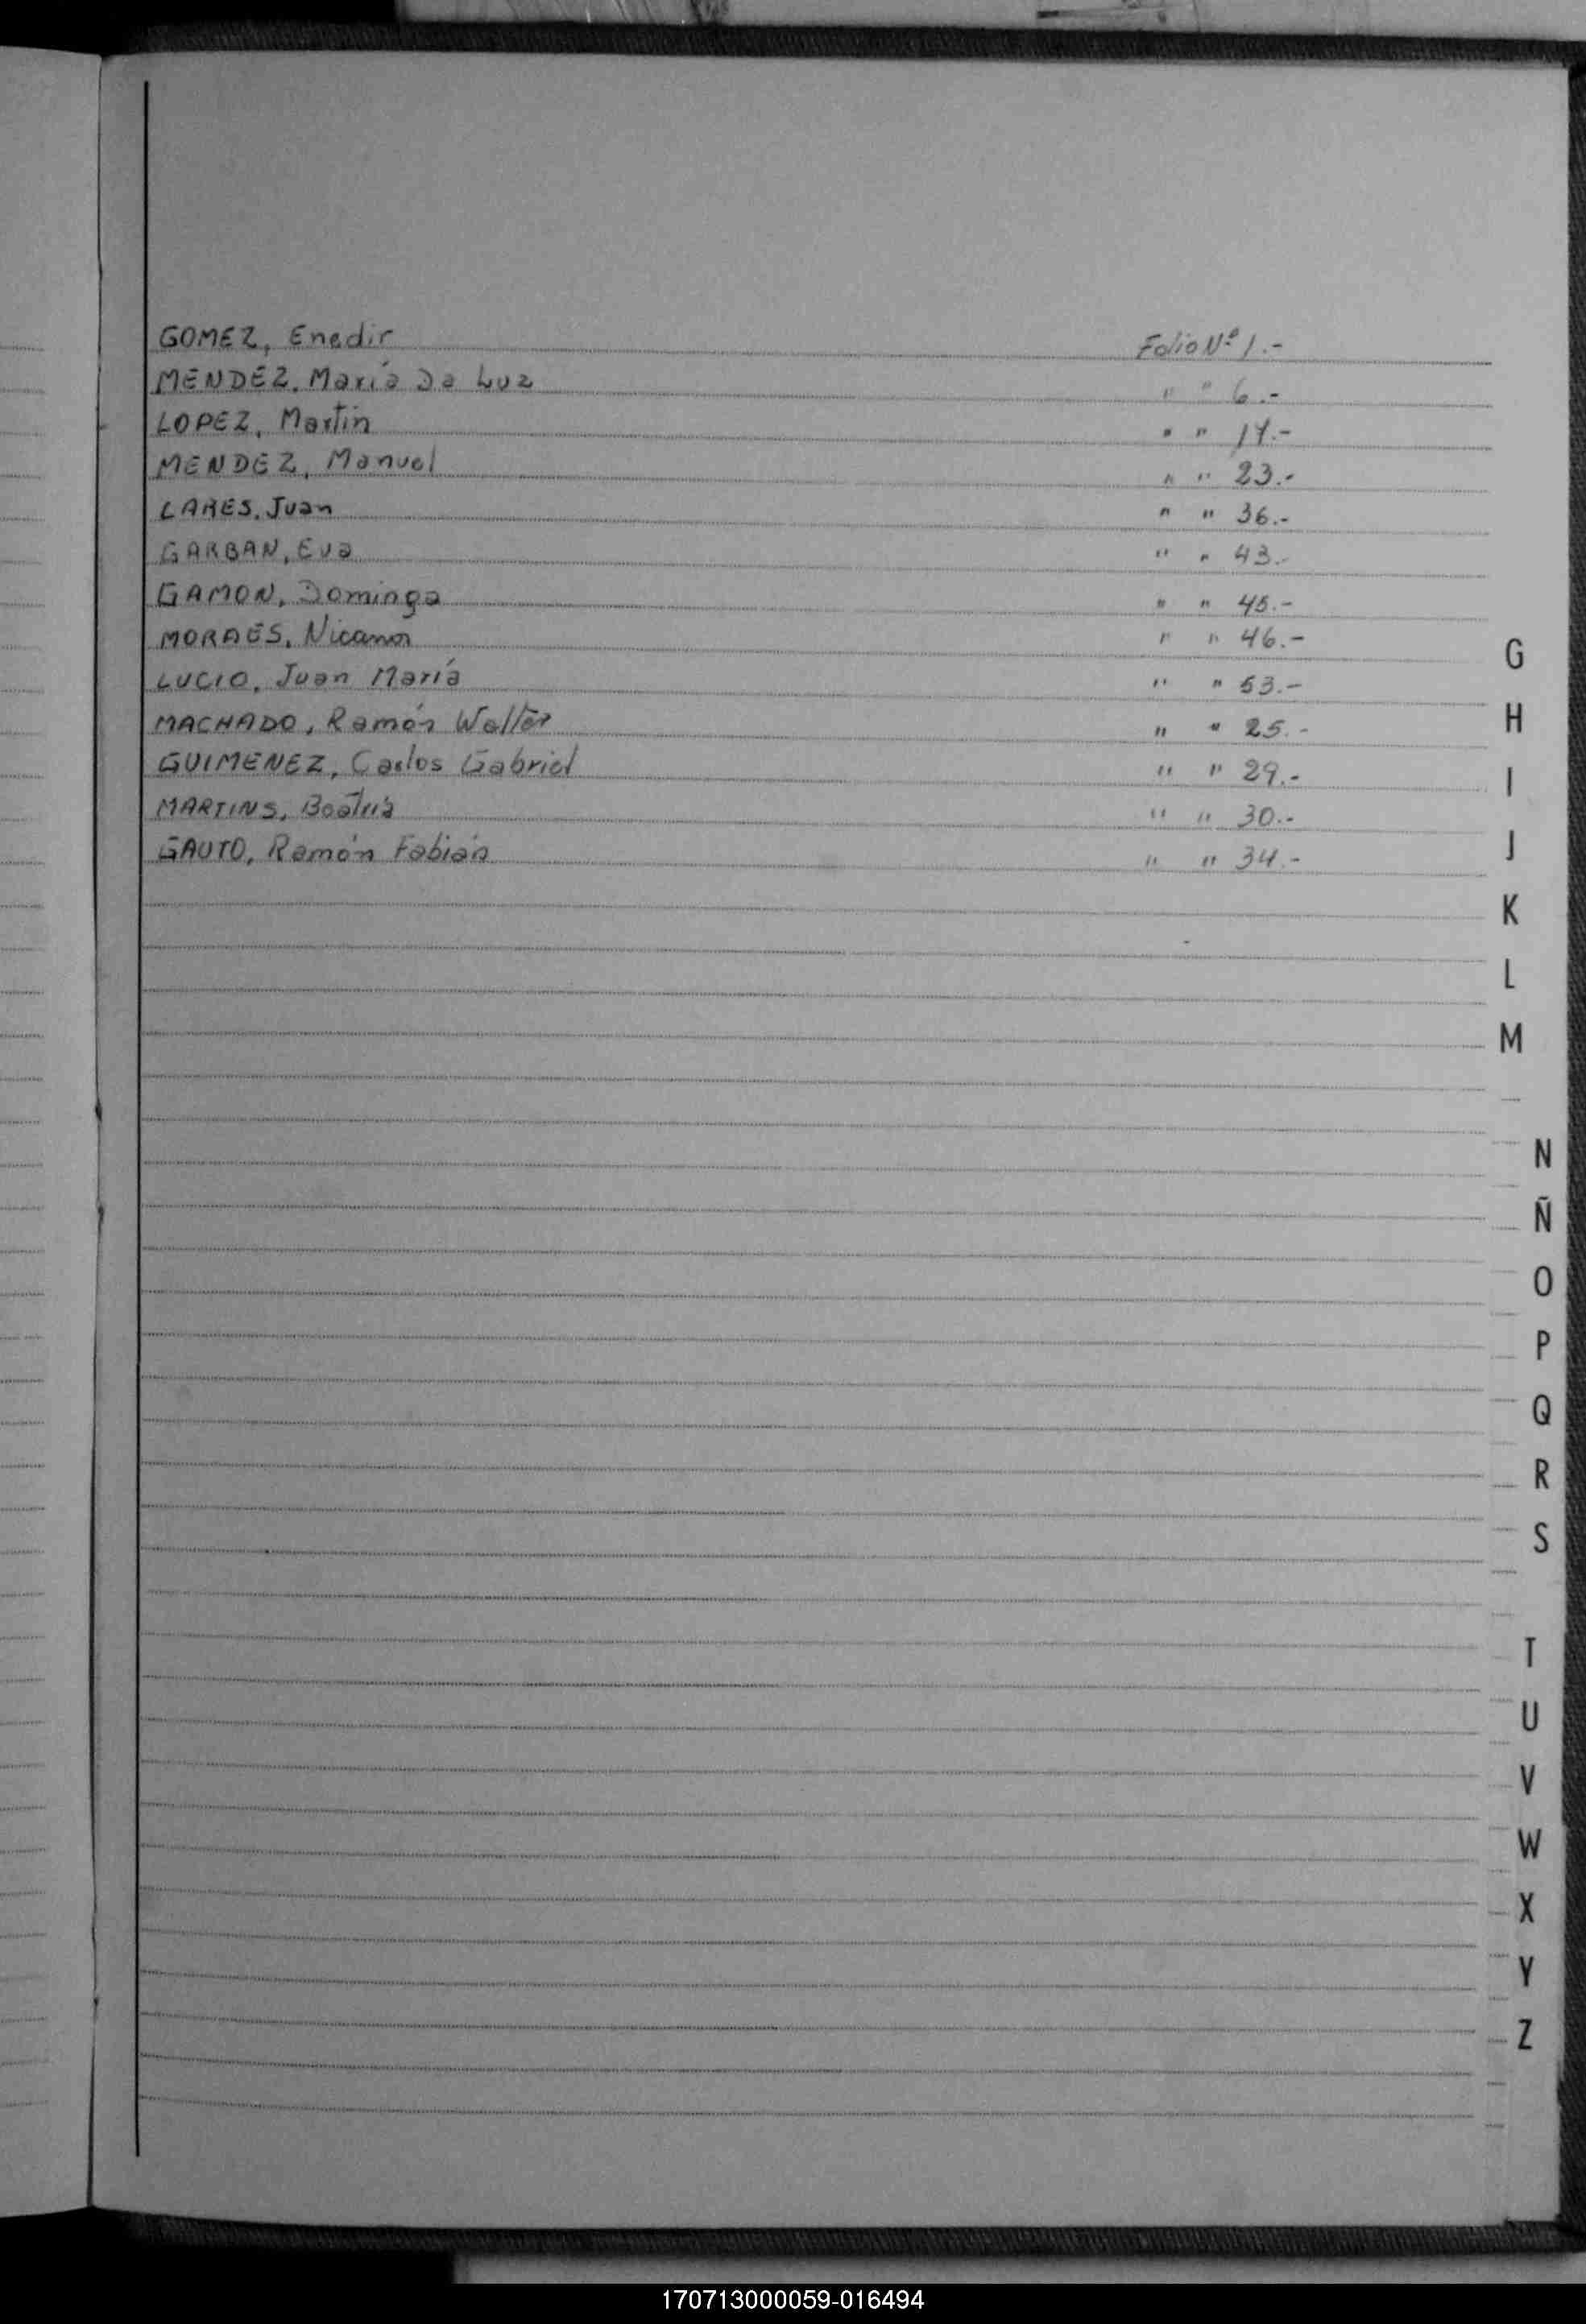 GOMEZ, Enedir Folio Nº 1.-
MENDEZ, María Da Luz " " 6.-
LOPEZ, Martin " " 17.-
MENDEZ, Manuel " " 23.-
LARES, Juan " " 36.-
GARBAN, Eva " " 43.-
GAMON, Dominga " " 45.-
MORAES, Nicanor " " 46.-
LUCIO, Juan María " " 53.-
MACHADO, Ramón Walter " " 25.-
GUIMENEZ, Carlos Gabriel " " 29.-
MARTINS, Beatris " " 30.-
GAUTO, Ramón Fabián " " 34.-
G
H
I
J
K
L
M
N
Ñ
O
P
Q
R
S
T
U
V
W
X
Y
Z
170713000059-016494